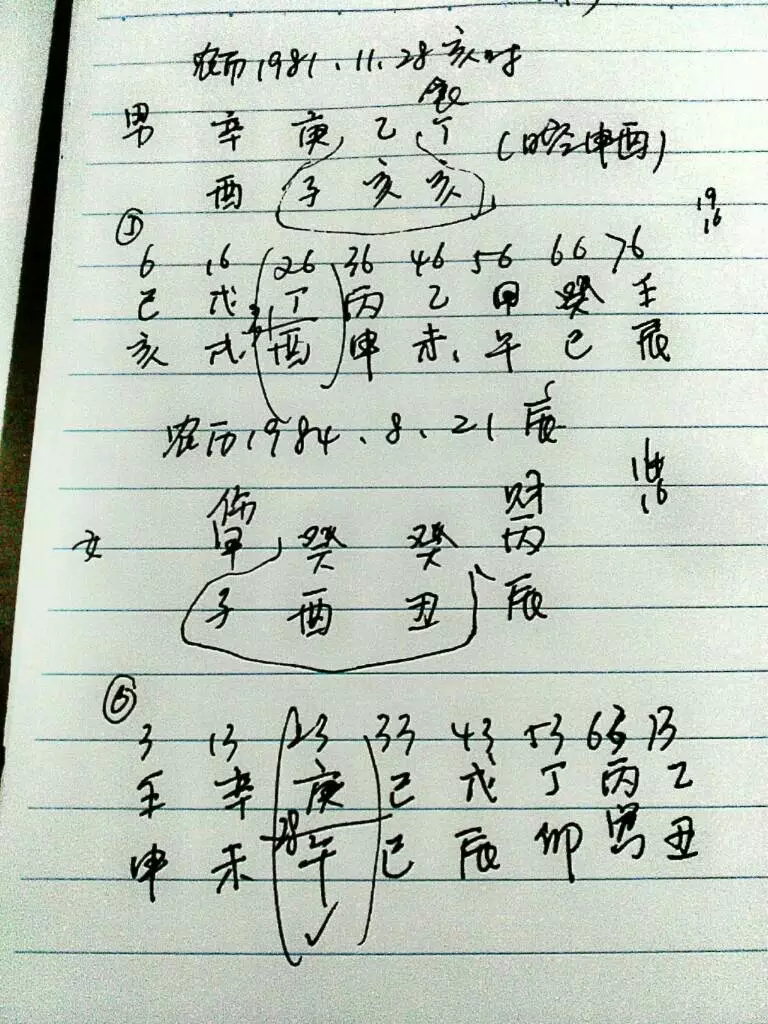 农历1981、11、28亥时
食
男 辛 庚 乙 丁
酉 子 亥 亥 (时空申酉)
①
19
16
6 16 26 36 46 56 66 76
己 戊 丁 丙 乙 甲 癸 壬
亥 戌 酉 申 未 午 巳 辰
农历1984、8、21辰
16
伤 财
女 甲 癸 癸 丙
子 酉 丑 辰
⑥
3 13 23 33 43 53 63 73
壬 辛 庚 己 戊 丁 丙 乙
申 未 28 午 巳 辰 卯 寅 丑